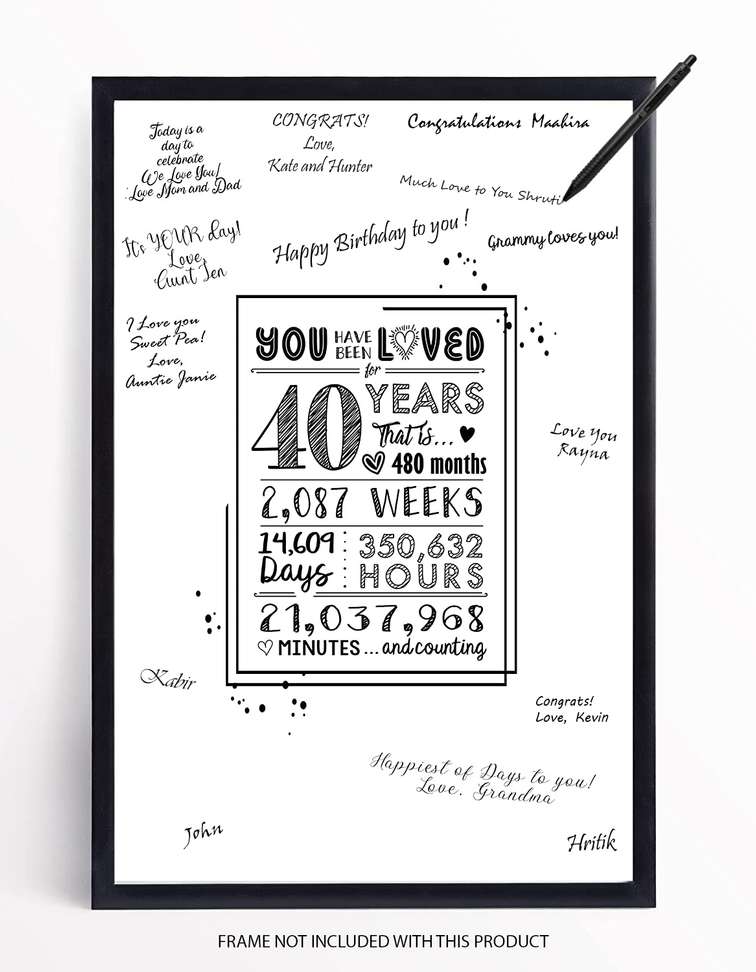 Today is a
day to
celebrate
We Love You!
Love Mom and Dad
CONGRATS!
Love,
Kate and Hunter
Congratulations Maahira
Much Love to You Shruti
It's YOUR day!
Love,
Aunt Jen
Happy Birthday to you !
Grammy loves you!
I Love you
Sweet Pea!
Love,
Auntie Janie
YOU HAVE BEEN LOVED
for
40 YEARS
That Is...
480 months
2,087 WEEKS
14,609
Days
350,632
HOURS
21,037,968
MINUTES ... and counting
Love You
Rayna
Kabir
Congrats!
Love, Kevin
Happiest of Days to you!
Love, Grandma
John
Hritik
FRAME NOT INCLUDED WITH THIS PRODUCT